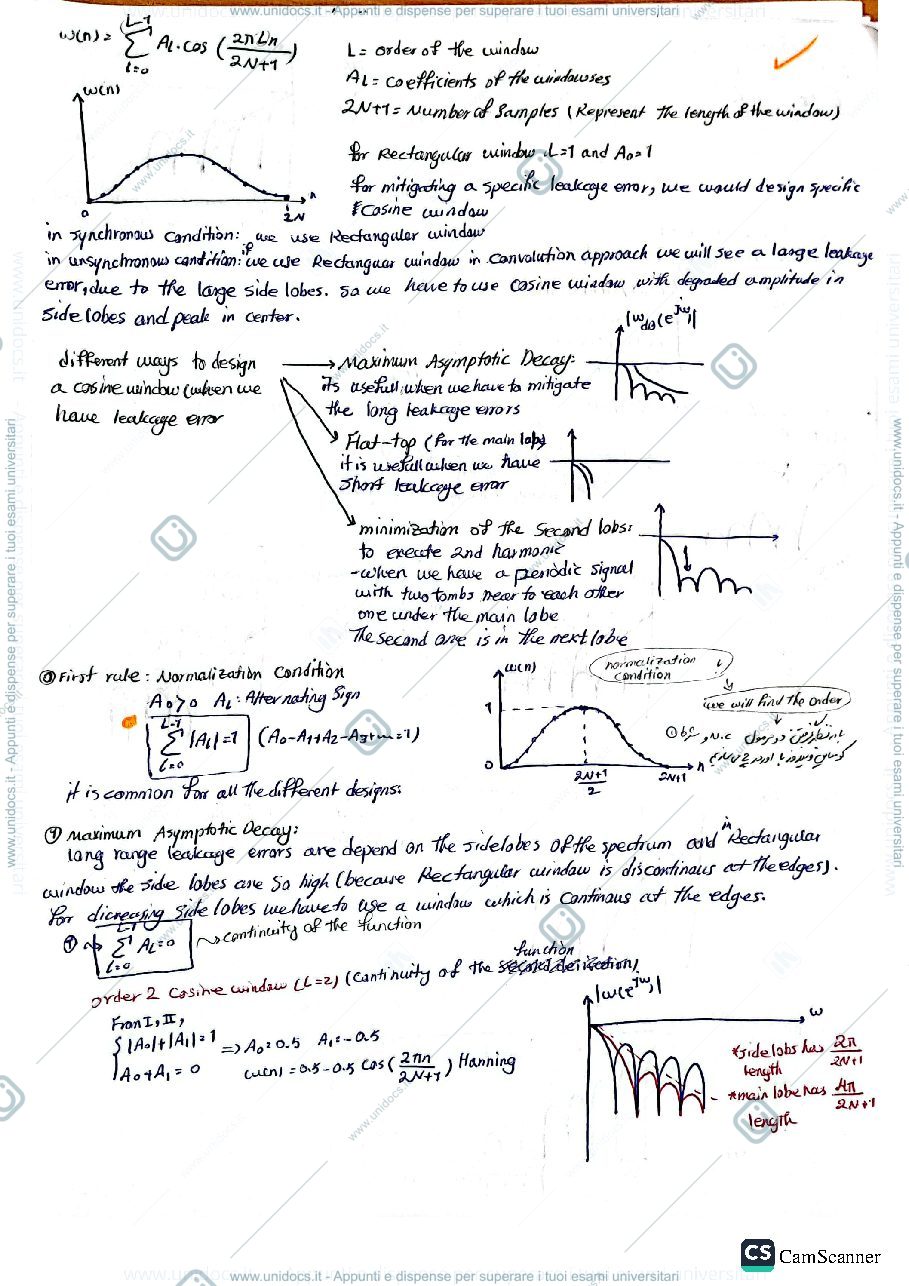 www.unidocs.it - Appunti e dispense per superare i tuoi esami universitari
w(n) = Σ_{l=0}^{L-1} A_L . cos (2πLn / 2N+1)
L = order of the window
AL = coefficients of the windowses
2N+1 = Number of Samples (Represent the length of the window)
for Rectangular window L=1 and A0=1
for mitigating a specific leakage error, we would design specific
cosine window
w(n)
n
0
2N
in synchronous condition: we use Rectangular window
in unsynchronous condition: if we use Rectanguar window in convolution approach we will see a large leakage
error, due to the large side lobes. So we have to use cosine window with degraded amplitude in
side lobes and peak in center.
different ways to design
a cosine window (when we
have leakage error
Maximum Asymptotic Decay:
its usefull when we have to mitigate
the long leakage errors
|w_dB(e^jw)|
Flat-top (for the main lob)
it is usefull when we have
short leakage error
minimization of the second lobs:
to execute 2nd harmonic
- when we have a periodic signal
with two tombs near to each other
one under the main lobe
The second one is in the next lobe
① First rule: Normalization Condition
A0>0 AL: Alternating Sign
Σ_{l=0}^{L-1} |AL| = 1 (A0-A1+A2-A3+...=1)
it is common for all the different designs.
w(n)
1
0
2N+1 / 2
2N+1
n
normalization
condition
we will find the order
② Maximum Asymptotic Decay:
long range leakage errors are depend on the sidelobes of the spectrum and in Rectangular
window the side lobes are so high (because Rectangular window is discontinous at the edges).
for dicreasing side lobes we have to use a window which is continous at the edges.
Σ_{l=0}^{L-1} AL = 0
continuity of the function
order 2 cosine window (L=2) (Continuity of the function)
From I, II,
{ |A0|+|A1|=1
A0+A1 = 0
=> A0=0.5 A1=-0.5
w(n) = 0.5-0.5 cos(2πn / 2N+1) Hanning
|w(e^jw)|
w
*side lobs has 2π / 2N+1
length
*main lobe has 4π / 2N+1
length
CS CamScanner
www.unidocs.it - Appunti e dispense per superare i tuoi esami universitari